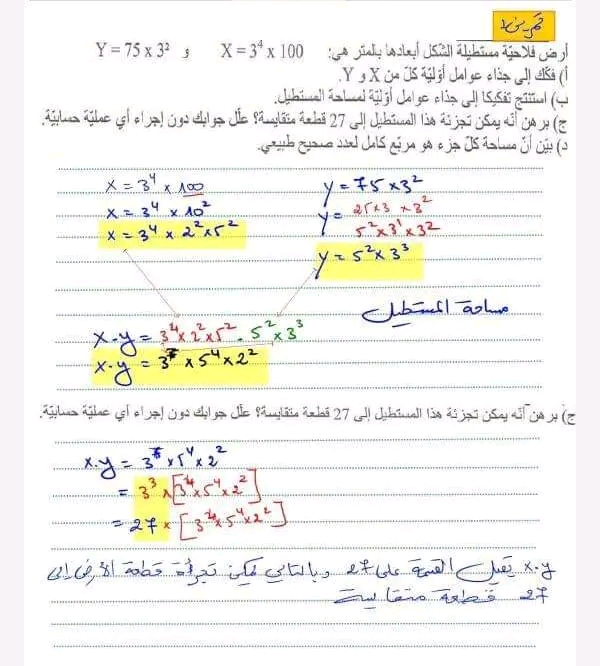 تمرين 1
أرض فلاحيّة مستطيلة الشّكل أبعادها بالمتر هي: X = 3⁴ x 100 و Y = 75 x 3²
أ) فكّك إلى جذاء عوامل أوّليّة كلّ من X و Y.
ب) استنتج تفكيكا إلى جذاء عوامل أوّليّة لمساحة المستطيل.
ج) برهن أنّه يمكن تجزئة هذا المستطيل إلى 27 قطعة متقايسة؟ علّل جوابك دون إجراء أي عمليّة حسابيّة.
د) بيّن أنّ مساحة كلّ جزء هو مربّع كامل لعدد صحيح طبيعي.
x = 3⁴ x 100
x = 3⁴ x 10²
x = 3⁴ x 2² x 5²
y = 75 x 3²
y = 25 x 3 x 3²
5² x 3¹ x 3²
y = 5² x 3³
مساحة المستطيل
x.y = 3⁴ x 2² x 5² . 5² x 3³
x.y = 3⁷ x 5⁴ x 2²
ج) برهن أنّه يمكن تجزئة هذا المستطيل إلى 27 قطعة متقايسة؟ علّل جوابك دون إجراء أي عمليّة حسابيّة.
x.y = 3⁷ x 5⁴ x 2²
= 3³ x [3⁴ x 5⁴ x 2²]
= 27 x [3⁴ x 5⁴ x 2²]
x.y يقبل القسمة على 27 وبالتالي يمكن تجزأة قطعة الأرض إلى
27 قطعة متقايسة